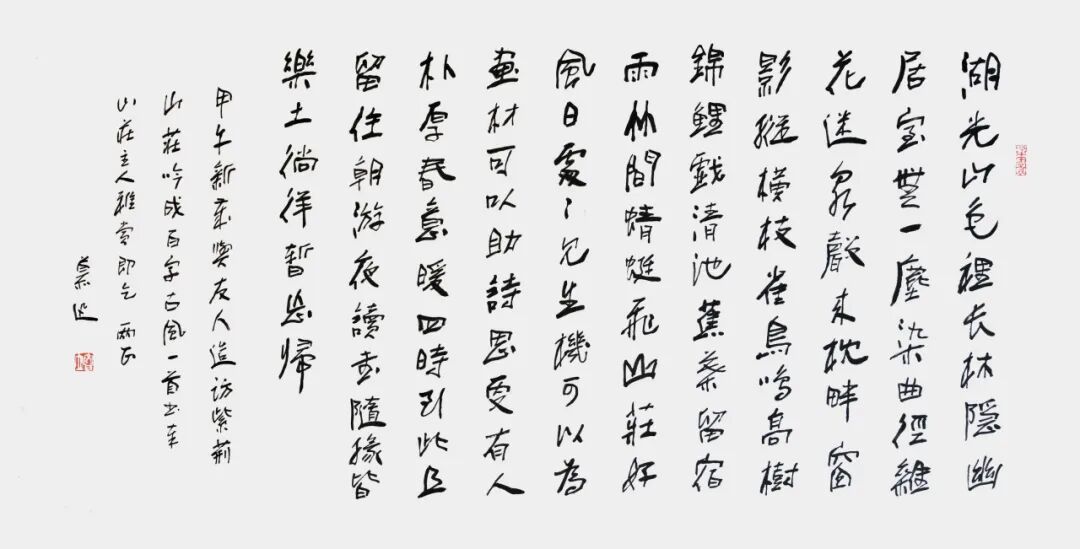 湖光山色裡长林隱幽
居室無一塵染曲徑雜
花迷泉聲来枕畔窗
影縱橫枝雀鳥鳴高樹
錦鯉戲清池蕉葉留宿
雨竹間蜻蜓飛山莊好
風日處々見生機可以為
畫材可以助詩思更有人
朴厚春意暖四時到此且
留住朝游夜讀書隨緣皆
樂土徜徉暫忘歸
甲午新與友人造访紫荊
山莊吟成百字古風一首书奉
山莊主人雅賞即乞 兩正
慕